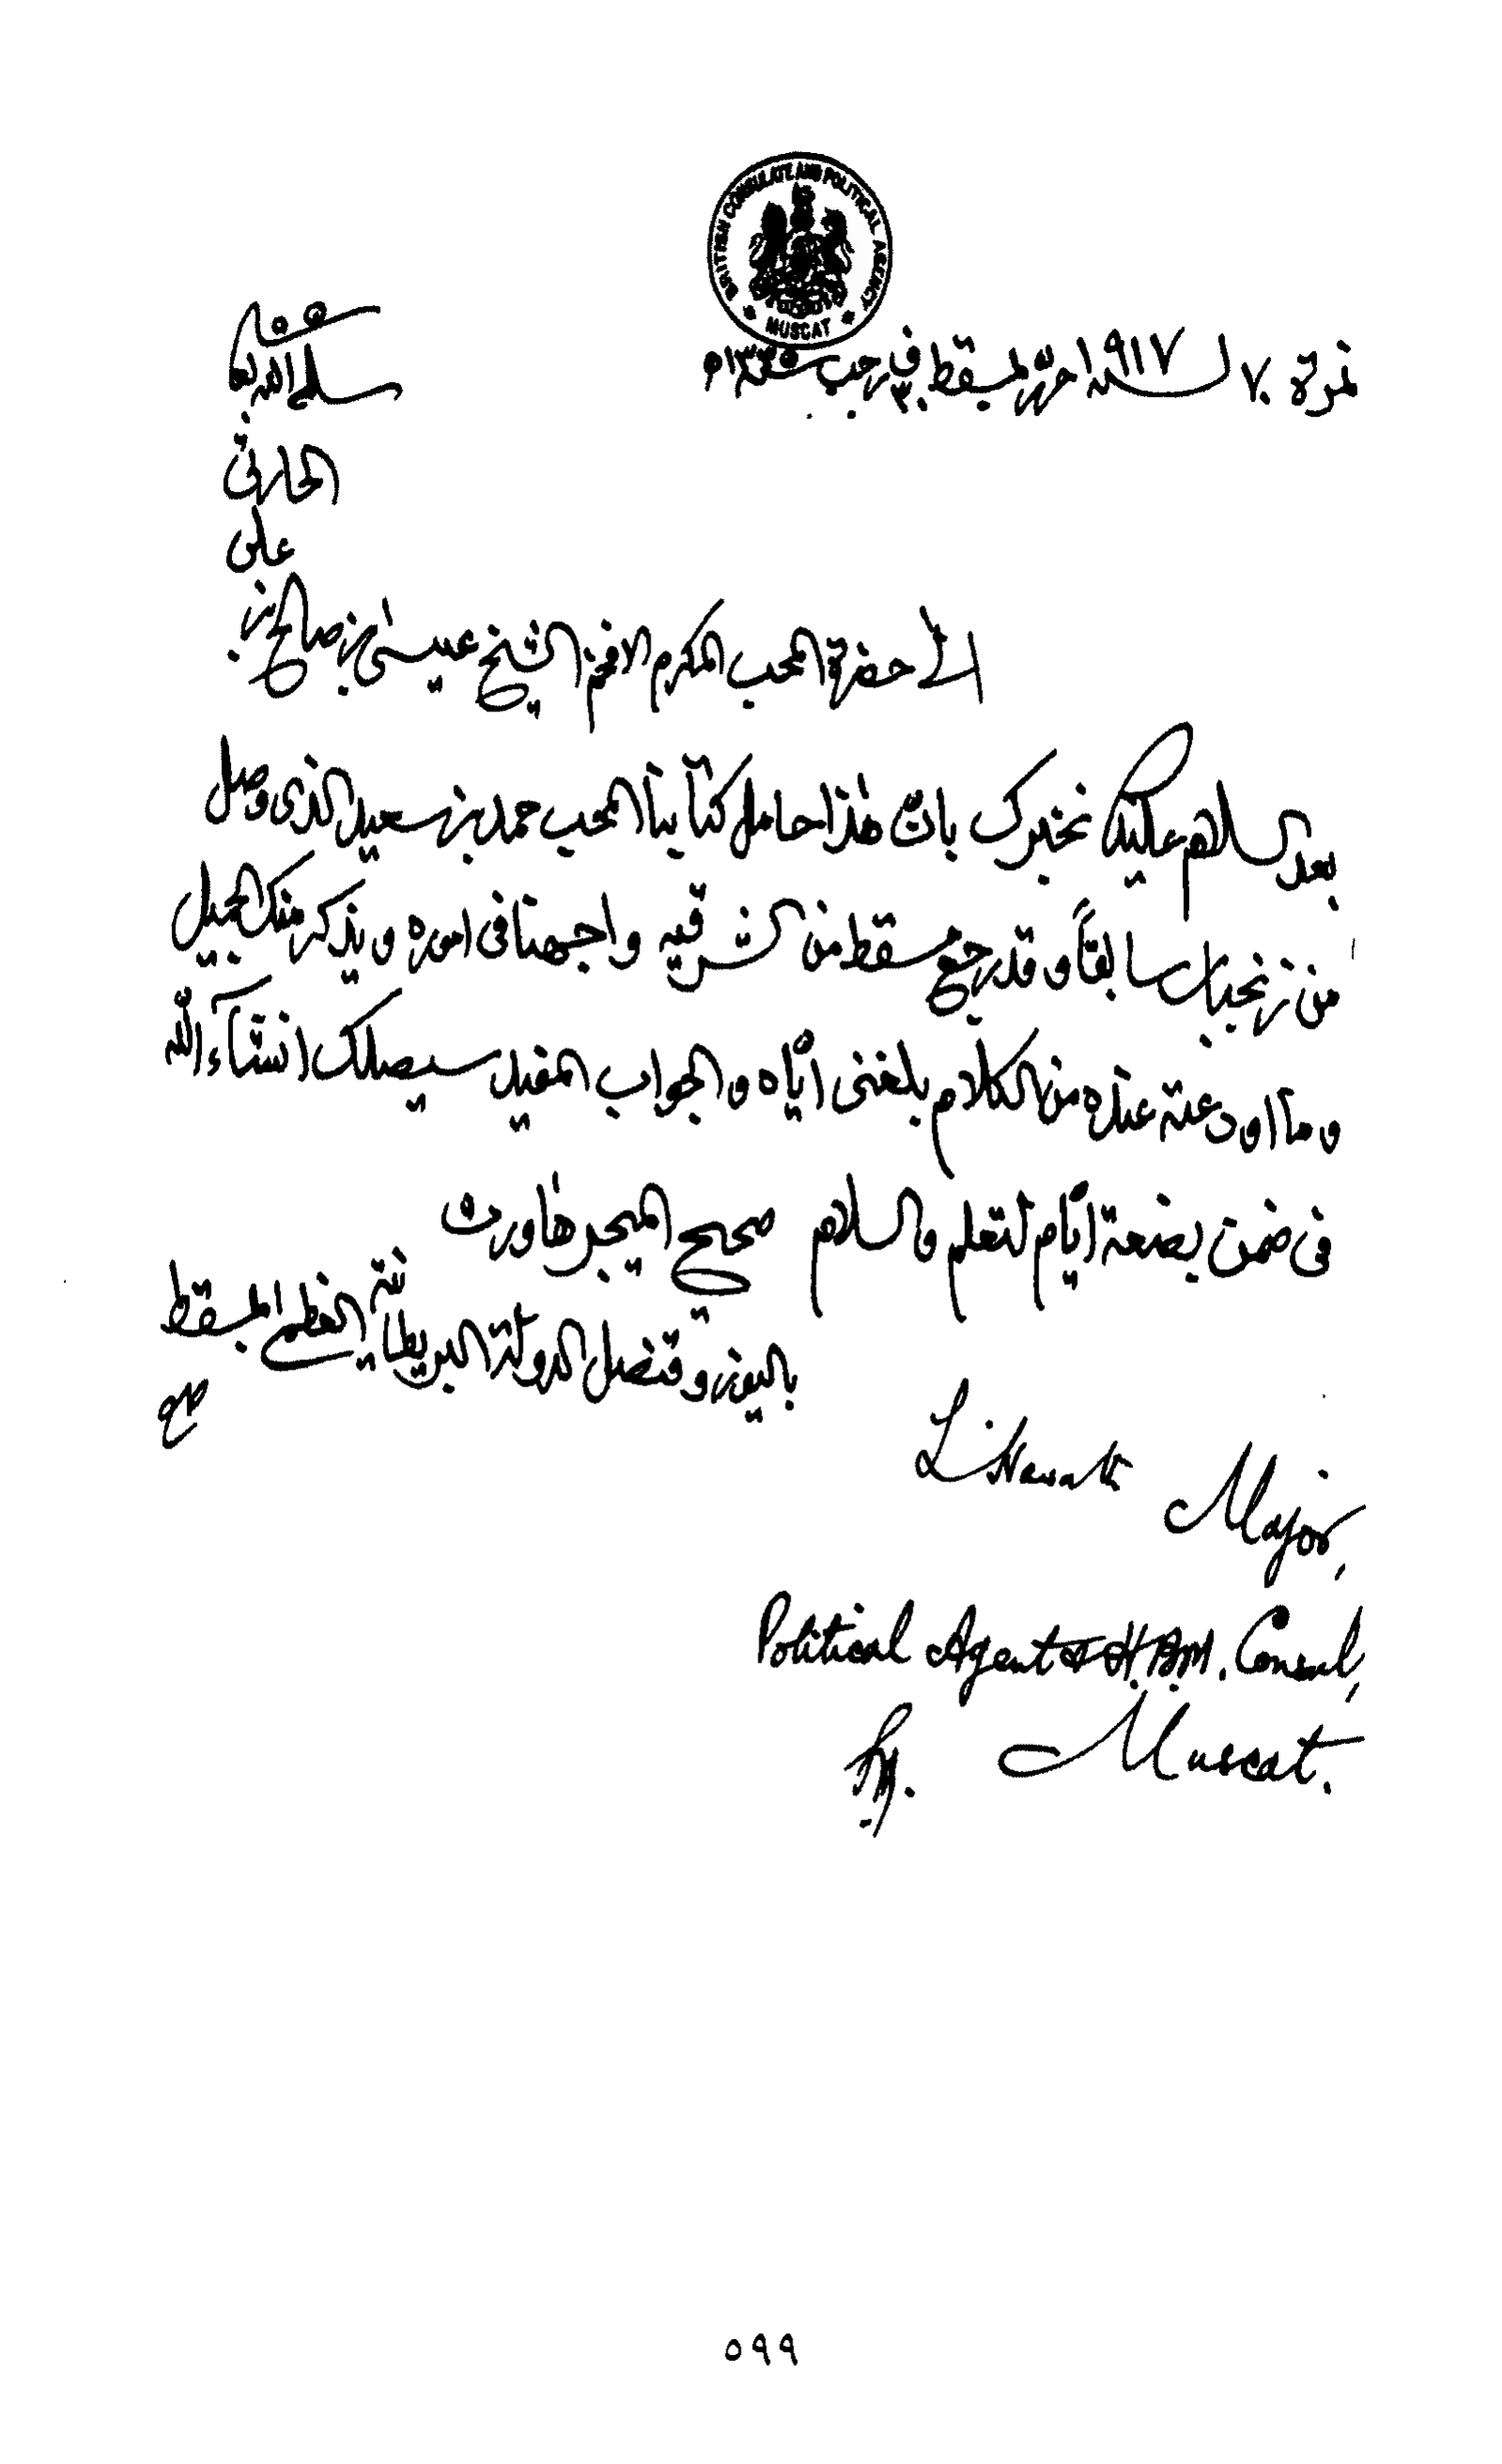 BRITISH CONSULATE AND POLITICAL AGENCY
MUSCAT
نمرة ٧٠ سنه ١٩١٧ حرر بمسقط في ٣٠ رجب سنه ١٣٣٥
الى حضرة المحب المكرم الافخم الشيخ عيسى بن صالح بن
علي
الحارثي
سلمه الله تعا
بعد السلام عليك نخبرك بان هٰذا حامل كتابنا المحب حمد بن سعيد الذي وصل
من زنجبار سابقاً وقد رجع مسقط من الشرقيه واجهنا في اموره ويذكر منك الجميل
وما اودعته عنده من الكلام بلغني ايّاه والجواب المفيد سيصلك انشآء الله
في ضمن بضعة ايّام لتعلم والسلام صحيح الميجر هاورث
باليوز وقنصل الدولة البريطانية العظمى بمسقط
صح
L. Haworth Major,
Political Agent & H.B.M. Consul,
Muscat.
٥٩٩